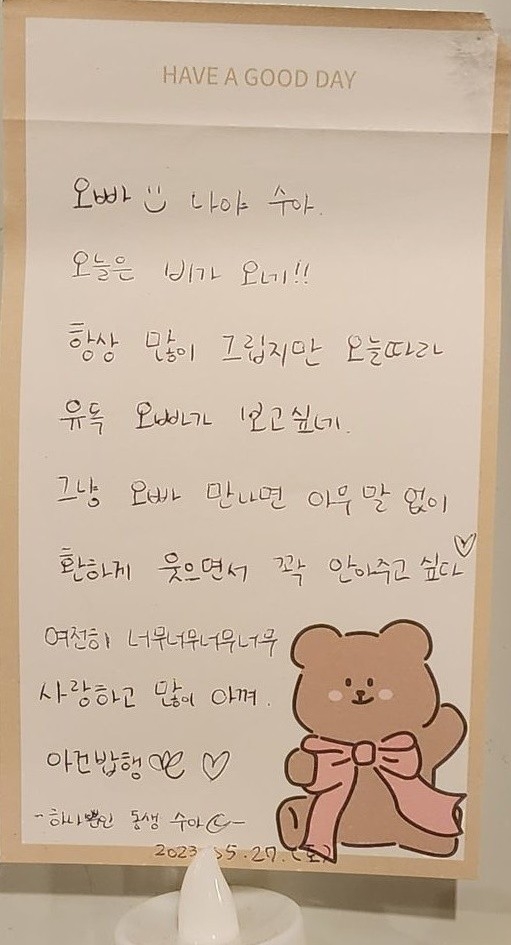 HAVE A GOOD DAY
오빠 나야 수아.
오늘은 비가 오네!!
항상 많이 그립지만 오늘따라
유독 오빠가 보고싶네.
그냥 오빠 만나면 아무 말 없이
환하게 웃으면서 꽉 안아주고 싶다♡
여전히 너무너무너무너무
사랑하고 많이 아껴.
아건밥행 ♡
-하나뿐인 동생 수아-
2023. 5.27.(토)